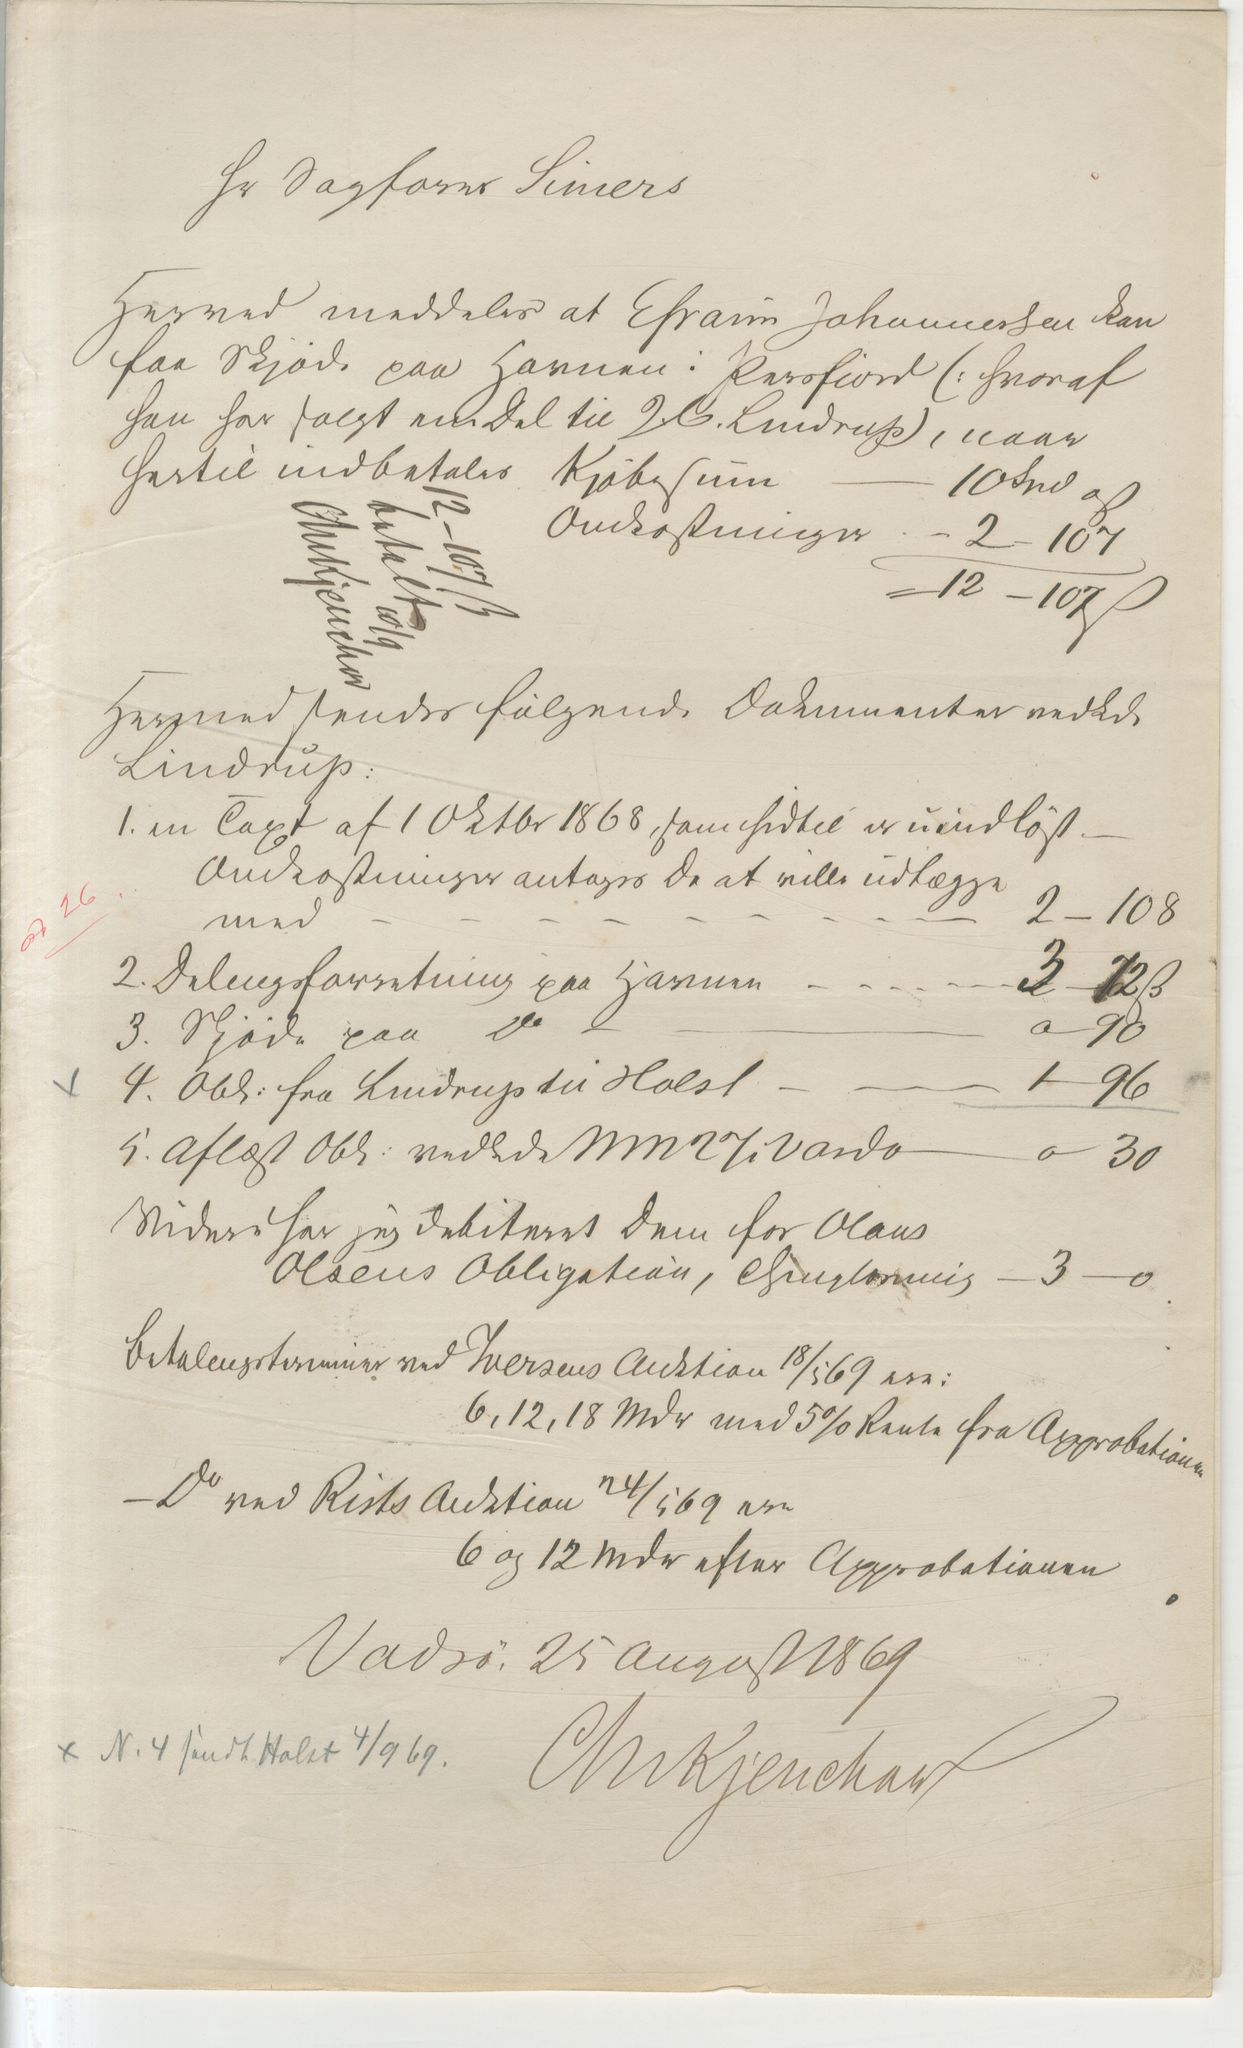 Hr Sagfører Simers
Herved meddeles at Efraim Johannessen kan
faa Skjøde paa Havnen i Persfiord (: hvoraf
han har solgt en Del til J. C. Lindrup), naar
hertil indbetales Kjøbesum — 10 Spd og
Omkostninger - 2 - 107
= 12 - 107 ß
12 - 107 ß
betalt 10/9
Chr Kjenchow
Hermed sendes følgende Dokumenter vedkde
Lindrup:
1. en Taxt af 1 Oktbr 1868, som hidtil er uindløst. —
Omkostninger antages De at ville udlægge
med - - - - - - - - 2 - 108
ad 26
2. Delingsforretning paa Havnen - - - - 3 - 72 ß
3. Skjøde paa Do - — 0 - 90
x 4. Obl: fra Lindrup til Holst - — 1 - 96
5. Aflæst Obl: vedkde MN 27 i Vardø — 0 30
Videre har jeg debiteret Dem for Olaus
Olsens Obligation, — 3 - 0
Betalingsterminer ved Iversens Auktion 18/5 69 ere:
6, 12, 18 Mdr med 5% Rente fra Approbationen
- Do ved Rists Auktion 24/5 69 ere
6 og 12 Mdr efter Approbationen
Vadsö. 25 August 1869
Chr Kjenchow
x N. 4 sendt Holst 4/9 69.